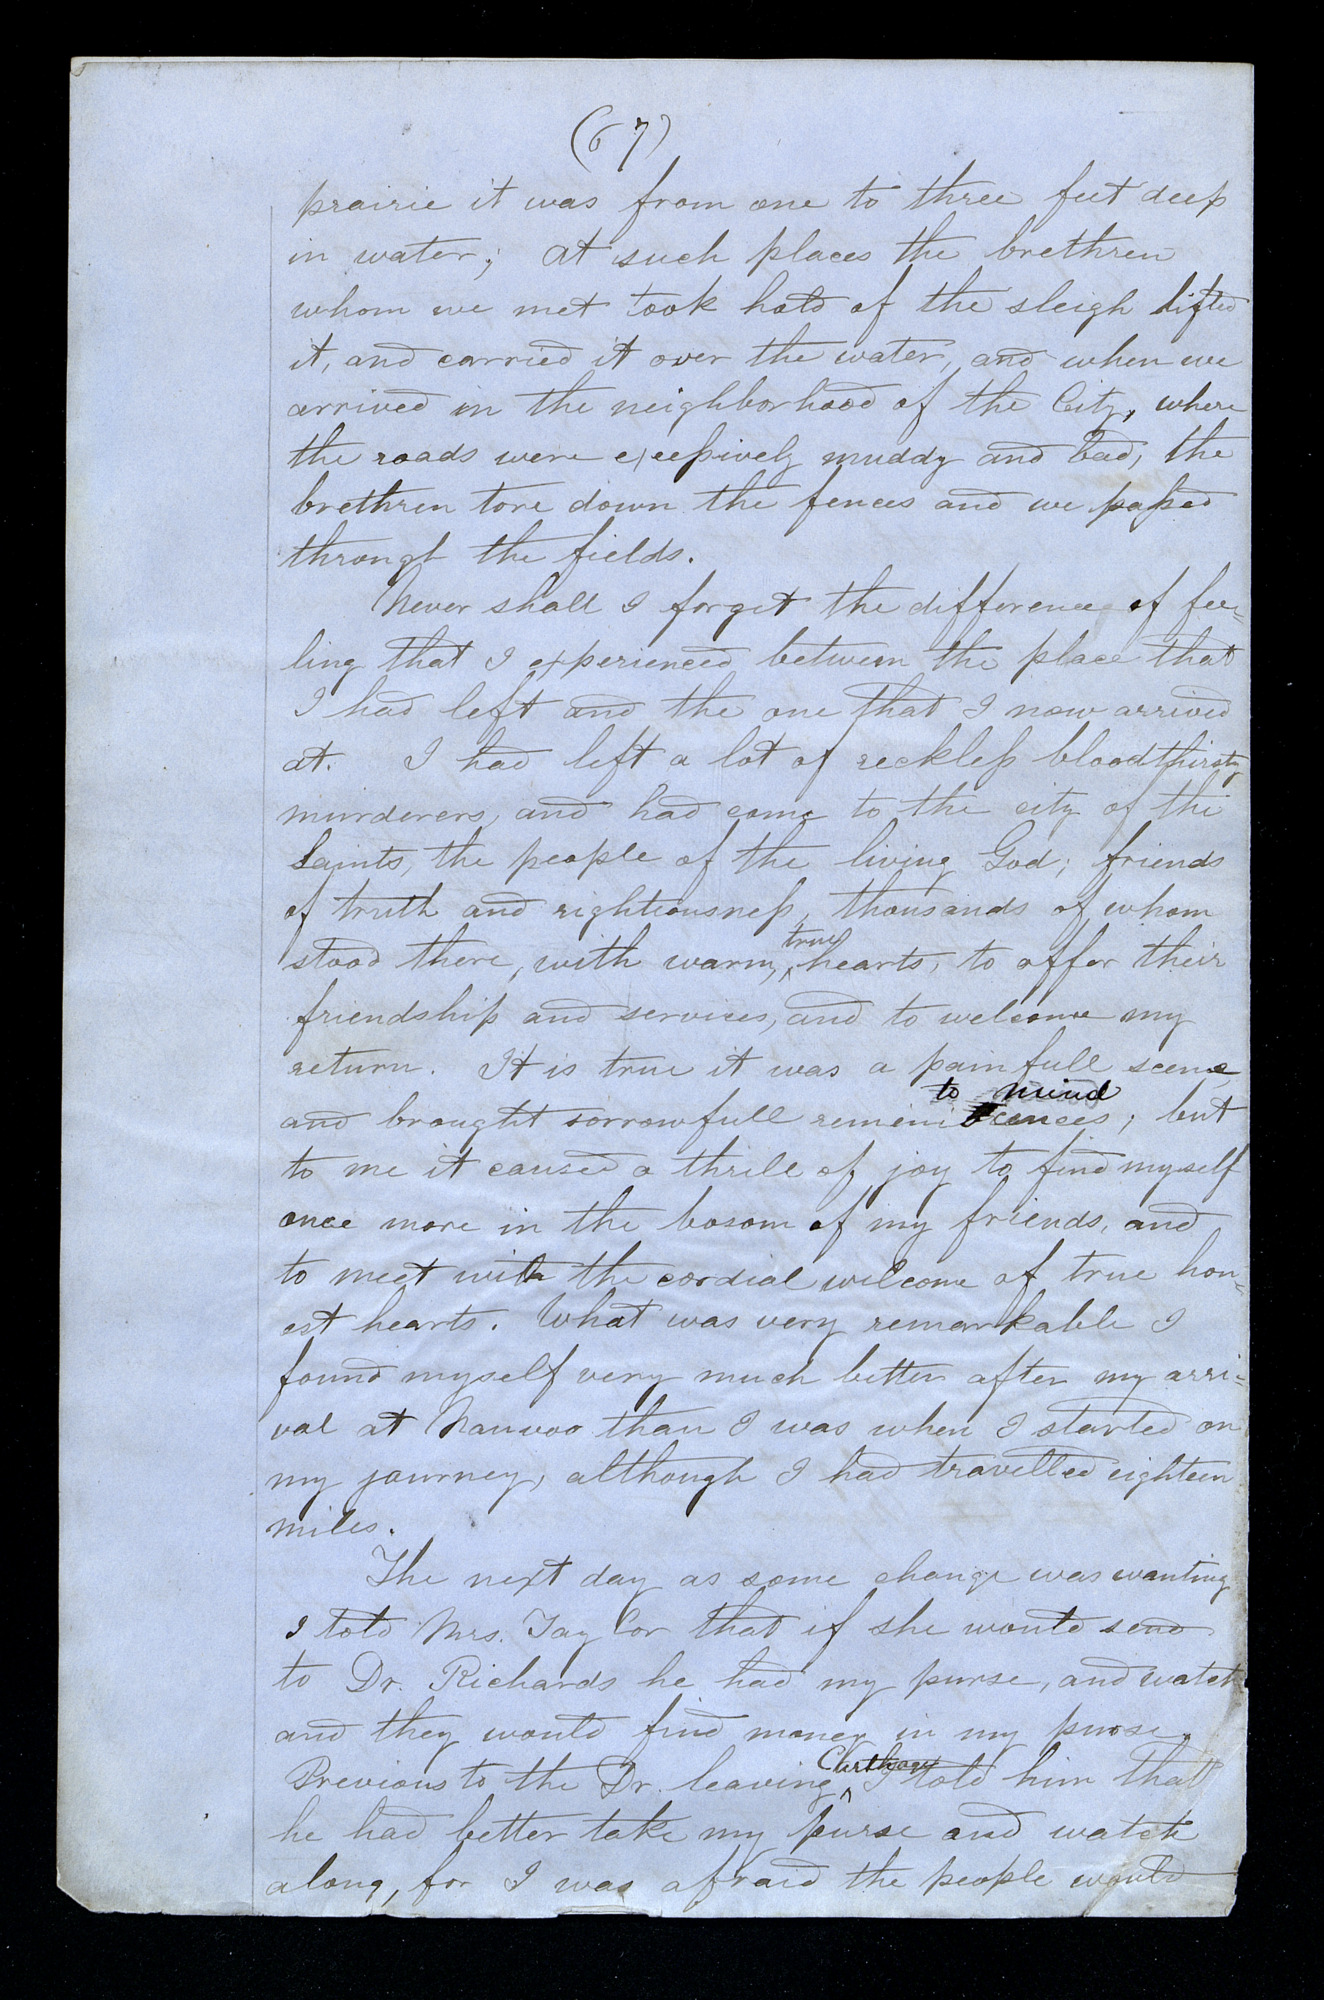 (67)
prairie it was from one to three feet deep
in water; at such places the brethren
whom we met took hold of the sleigh lifted
it, and carried it over the water, and when we
arrived in the neighborhood of the City, where
the roads were excessively muddy and bad, the
brethren tore down the fences and we passed
through the fields.
Never shall I forget the difference of fee=
ling that I experienced between the place that
I had left and the one that I now arrived
at. I had left a lot of reckless bloodthirsty
murderers, and had come to the city of the
Saints, the people of the living God; friends
of truth and rightiousness, thousands of whom
true
stood there, with warm, hearts, to offer their
friendship and services, and to welcome my
return. It is true it was a painfull scene
to mind
and brought sorrowfull reminiscences; but
to me it caused a thrill of joy to find myself
once more in the bosom of my friends, and
to meet with the cordial welcome of true hon=
est hearts. What was very remarkable I
found myself very much better after my arri=
val at Nauvoo than I was when I started on
my journey, although I had travelled eighteen
miles.
The next day as some change was wanting
I told Mrs. Taylor that if she would send
to Dr. Richards he had my purse, and watch
and they would find money in my purse.
Carthage
Previous to the Dr. leaving, I told him that
he had better take my purse and watch
along, for I was afraid the people would